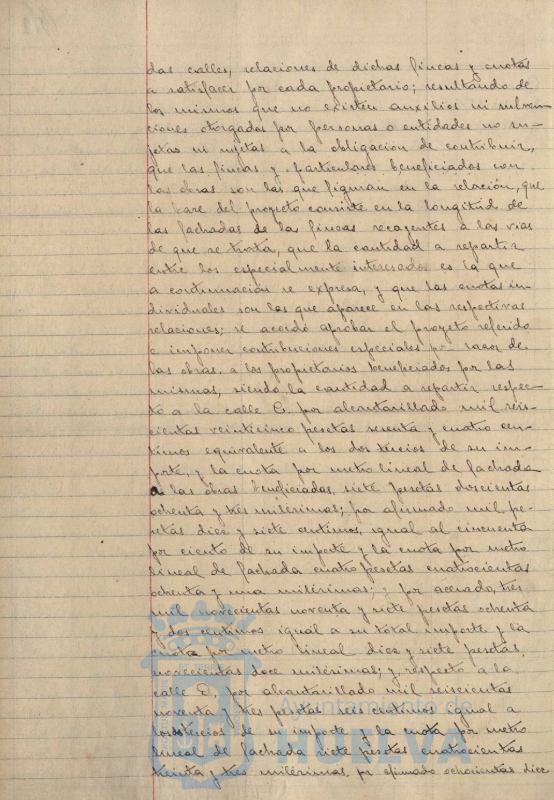 das calles, relaciones de dichas fincas y cuotas
a satisfacer por cada propietario; resultando de
los mismos que no existen auxilios ni subven-
ciones otorgadas por personas o entidades no su-
jetas ni sujetas a la obligacion de contribuir,
que las fincas y particulares beneficiados con
las obras son las que figuran en la relación, que
la base del proyecto consiste en la longitud de
las fachadas de las fincas recayentes a las vias
de que se trata, que la cantidad a repartir
entre los especialmente interesados es la que
a continuación se expresa, y que las cuotas in-
dividuales son las que aparece en las respectivas
relaciones; se acordó aprobar el proyecto referido
e imponer contribuciones especiales por razon de
las obras, a los propietarios beneficiados por las
mismas, siendo la cantidad a repartir respec-
to a la calle C. por alcantarillado mil seis-
cientas veinticinco pesetas sesenta y cuatro cen-
timos equivalente a los dos tercios de su im-
porte, y la cuota por metro lineal de fachada
a las obras beneficiadas, siete pesetas doscientas
ochenta y tres milésimas; por afirmado mil pe-
setas diez y siete centimos, igual al cincuenta
por ciento de su importe y la cuota por metro
lineal de fachada cuatro pesetas cuatrocientas
ochenta y una milésimas; y por acerado, tres
mil novecientas noventa y siete pesetas ochenta
y dos centimos igual a su total importe y la
cuota por metro lineal diez y siete pesetas,
novecientas doce milésimas; y respecto a la
calle D, por alcantarillado mil seiscientas
noventa y tres pesetas seis centimos igual a
los dos tercios de su importe y la cuota por metro
lineal de fachada siete pesetas cuatrocientas
treinta y tres milésimas, por afirmado ochocientas diez
Ayuntamiento de
HUELVA